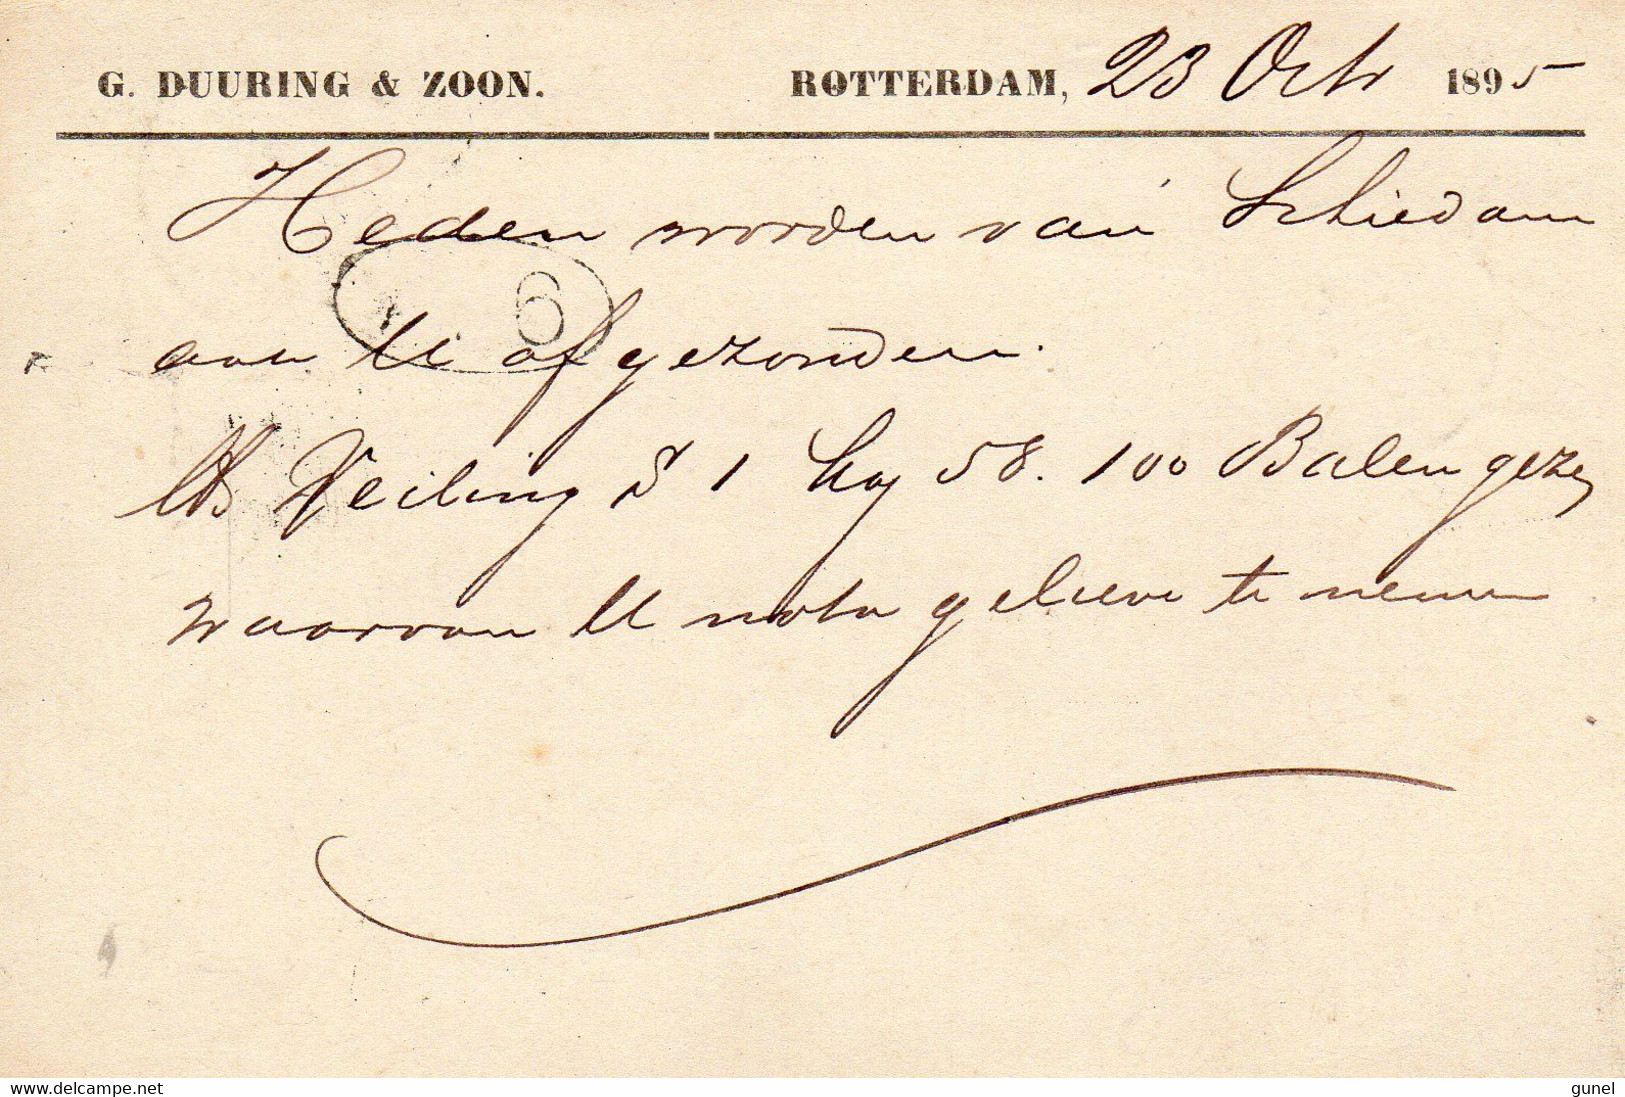 G. DUURING & ZOON. ROTTERDAM, 23 Octr 1895
Heden worden van Schiedam
aan U afgezonden.
6
Veiling 1 Kav 58. 100 Balen geze
waarvan U nota gelieve te nemen
www.delcampe.net gunel